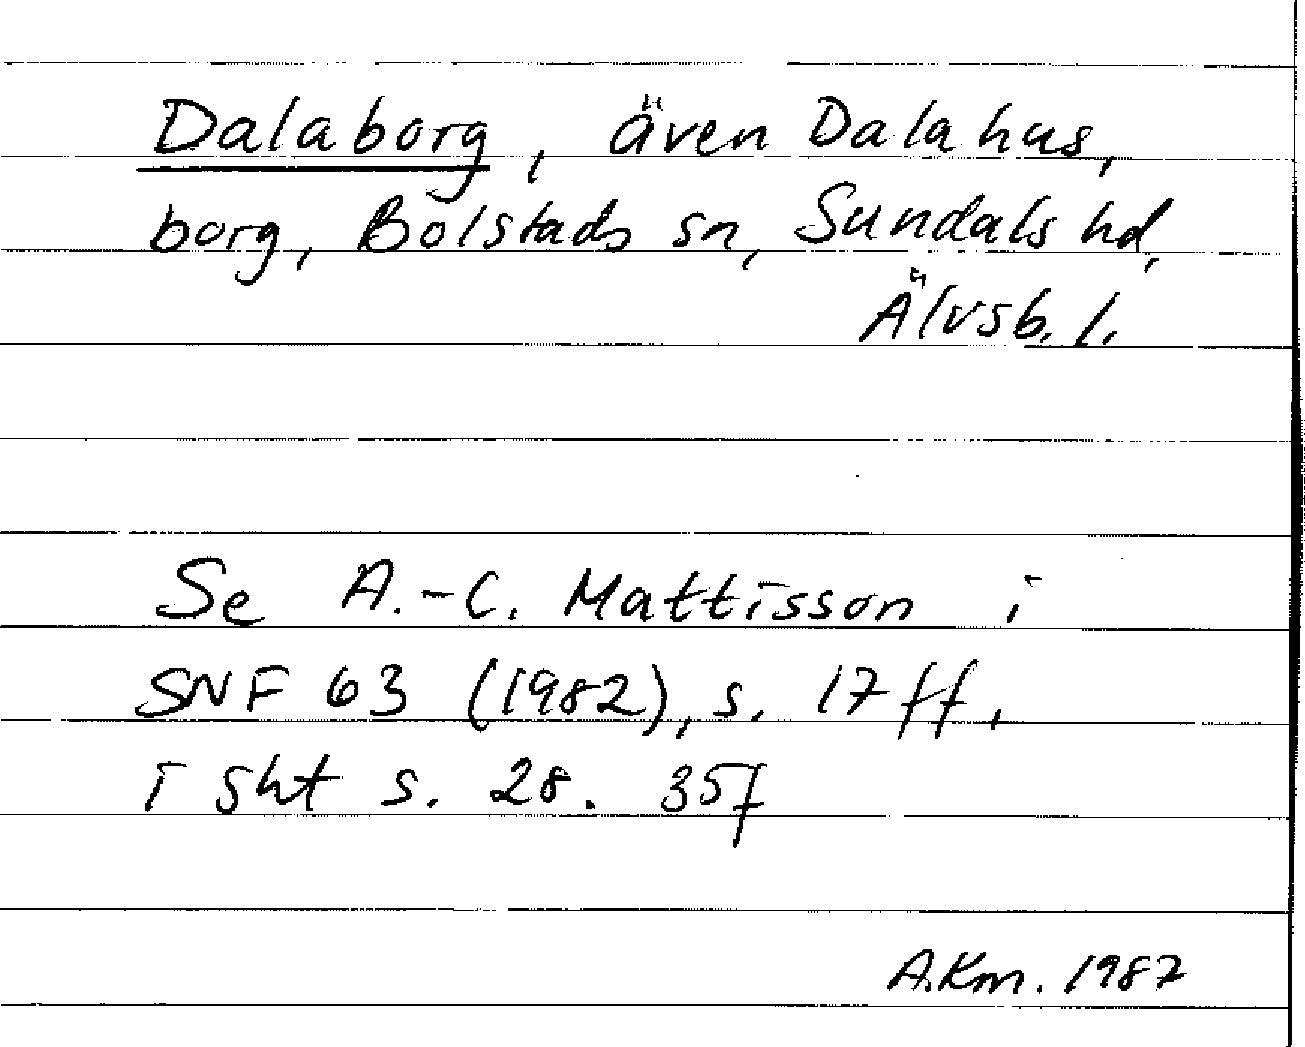 Dalaborg, även Dalahus,
borg, Bolstads sn, Sundals hd,
Älvsb. l.
Se A.-C. Mattisson i
SNF 63 (1982), s. 17 ff,
i sht s. 28. 35f
A.Km. 1987